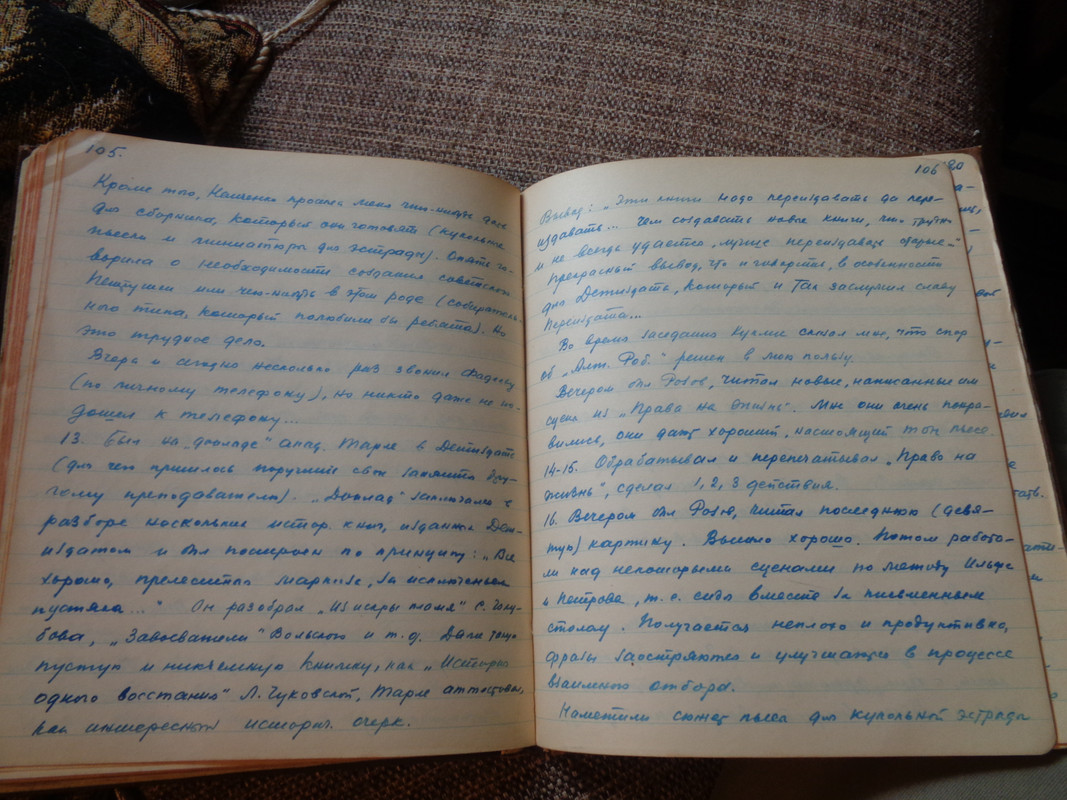 105.
Кроме того, просила меня что-нибудь дать
для сборника, который они готовят (кукольные
пьесы и миниатюры для эстрады). Опять го-
ворила о необходимости создания советского
Петрушки или чего-нибудь в этом роде (собиратель-
ного типа, который полюбили бы ребята). Но
это трудное дело.
Вчера и сегодня несколько раз звонил Фадееву
(по личному телефону), но никто даже не по-
дошел к телефону...
13. Был на „докладе" акад. Тарле в Детиздате
(для чего пришлось поручить свои занятия дру-
гому преподавателю). „Доклад" заключался в
разборе нескольких истор. книг, изданных Дет-
издатом и был построен по принципу: „Все
хорошо, прелестная маркиза, за исключеньем
пустяка..." Он разобрал „Из искры пламя" С. Голу-
бова, „Завоеватели" Вольского и т.д. Даже такую
пустую и никчемную книжку, как „История
одного восстания" Л. Чуковской, Тарле аттестовал,
как интересный историч. очерк.
106
Вывод: „Эти книги надо переиздавать да пере-
издавать... Чем создавать новые книги, что трудно
и не всегда удается, лучше переиздавать старые."
Прекрасный вывод, что и говорить, в особенности
для Детиздата, который и так заслужил славу
Переиздата...
Во время заседания сказал мне, что спор
об „Алт. Роб." решен в мою пользу.
Вечером был Розов, читал новые, написанные им
сцены из „Права на жизнь". Мне они очень понра-
вились, они дают хороший, настоящий тон пьесе.
14-15. Обрабатывал и перепечатывал „Право на
жизнь", сделал 1, 2, 3 действия.
16. Вечером был Розов, читал последнюю (девя-
тую) картину. Вышло хорошо. Потом работа-
ли над некоторыми сценами по методу Ильфа
и Петрова, т.е. сидя вместе за письменным
столом. Получается неплохо и продуктивно,
фразы заостряются и улучшаются в процессе
взаимного отбора.
Наметили сюжет пьесы для кукольной эстрады